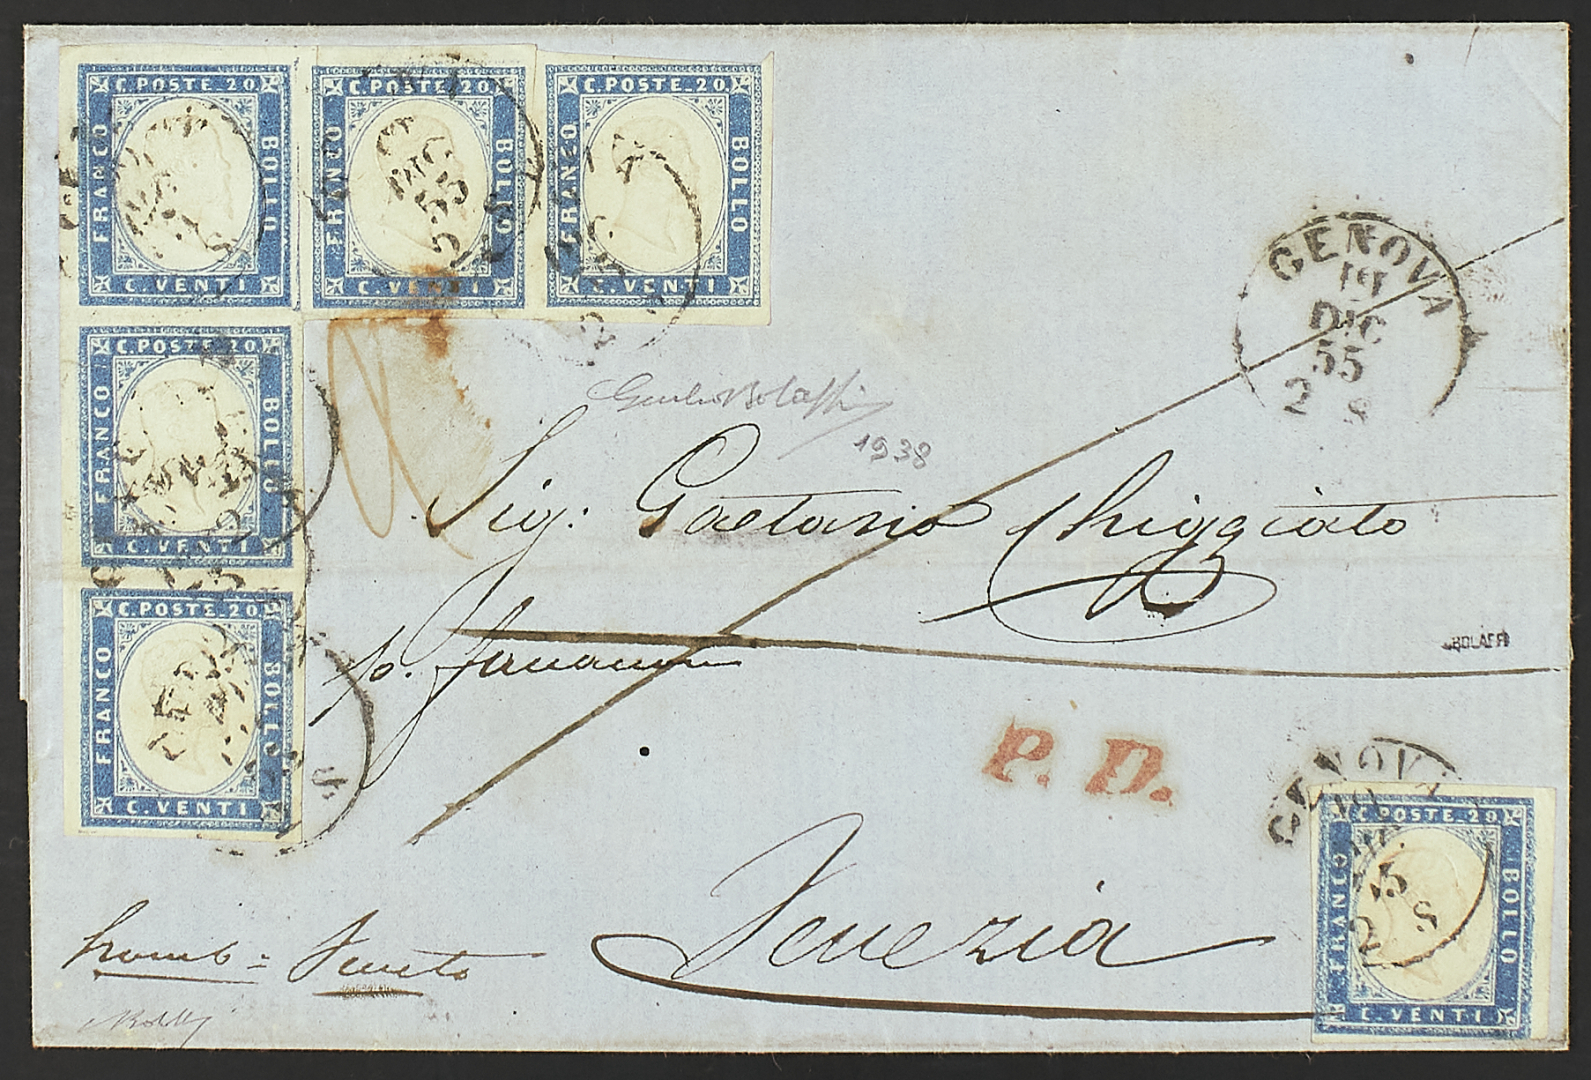 C. POSTE. 20.
FRANCO
BOLLO
C. VENTI
C. POSTE. 20.
FRANCO
BOLLO
C. VENTI
DIC
55
2 S
C. POSTE. 20.
FRANCO
BOLLO
C. VENTI
C. POSTE. 20.
FRANCO
BOLLO
C. VENTI
C. POSTE. 20.
FRANCO
BOLLO
C. VENTI
GENOVA
19
DIC
55
2 S
Giulio Bolaffi
1938
Sig: Gaetano Chiggiato
BOLAFFI
P. D.
Venezia
Lomb= Veneto
GENOVA
2 S
C. POSTE. 20.
FRANCO
BOLLO
C. VENTI